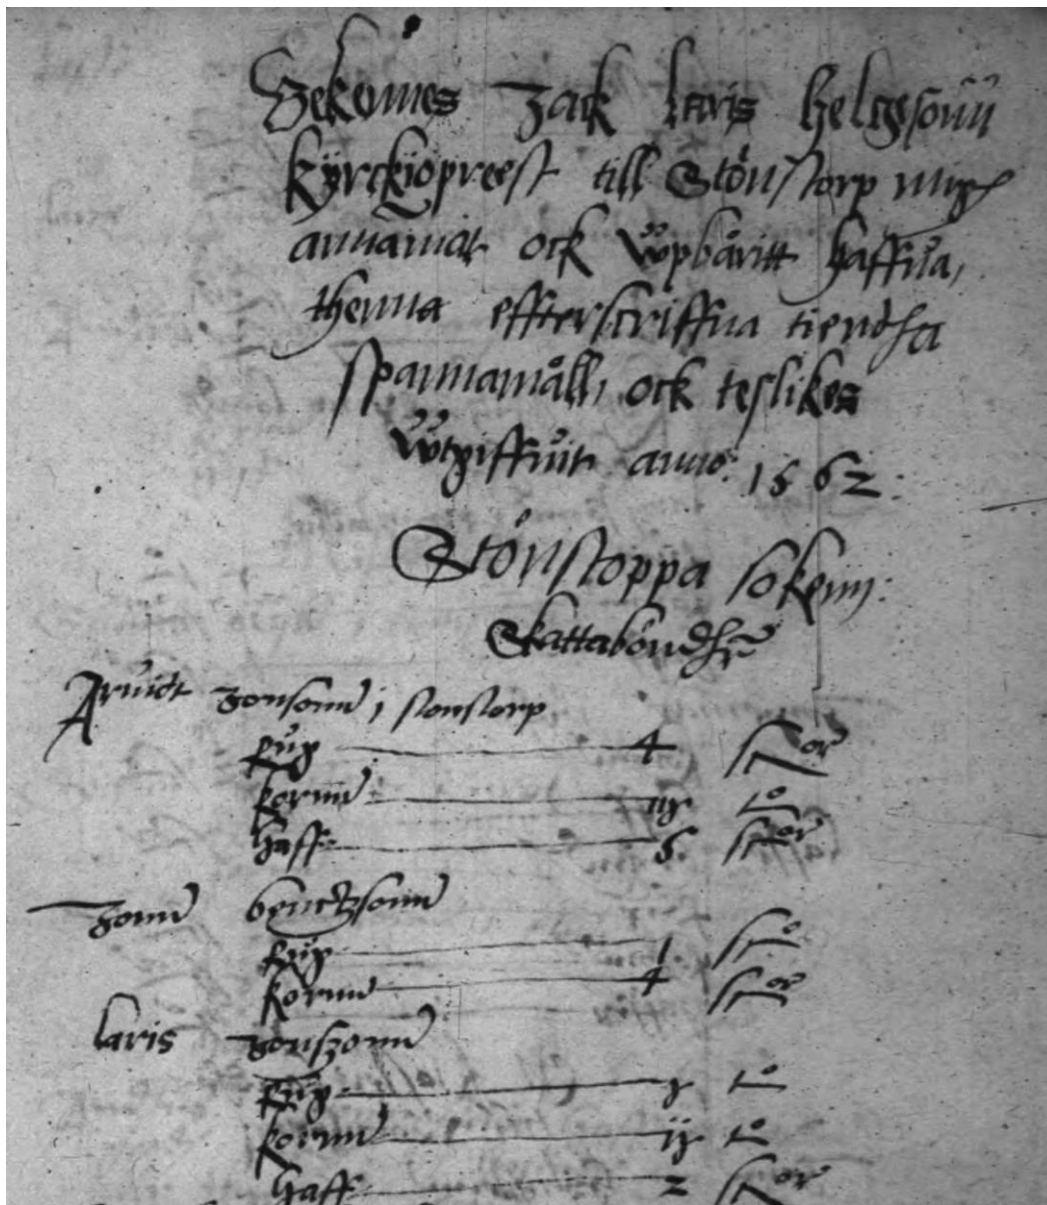 Bekennes Jack laris helgesonn
kyrckiopreest till Stönstorp migh
annamat ock wpbäritt haffua,
thenna effterscriffna tiendha
spannamåll, ock teslikes
wtgiffuit anno: 1562:
Stönstoppa sokenn:
Skattaböndher
Aruidt Jonsonn i stonstorp
Rug 4 skepor
kornn iij to
haffe 5 skepor
Jonn benctzsonn
Rug 1 skepo
kornn 4 skepor
laris Jonszonn
Rug j to
kornn ij to
haffe 2 skepor